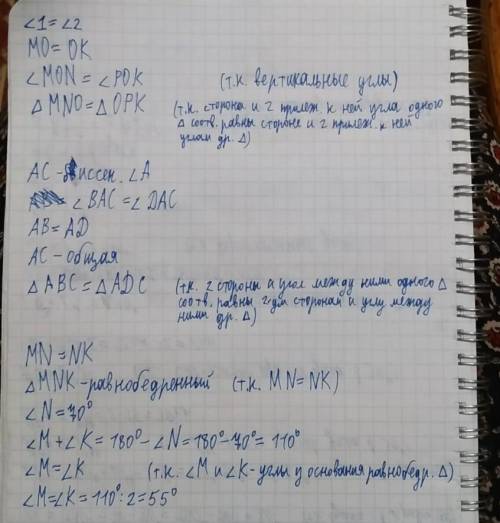 ∠1=∠2
MO=OK
∠MON=∠POK (т.к. вертикальные углы)
△MNO=△OPK (т.к. сторона и 2 прилеж. к ней угла одного
△ соотв. равны стороне и 2 прилеж. к ней
углам др. △)
AC - биссек. ∠A
∠BAC=∠DAC
AB=AD
AC - общая
△ABC=△ADC (т.к. 2 стороны и угол между ними одного △
соотв. равны 2-ум сторонам и углу между
ними др. △)
MN=NK
△MNK-равнобедренный (т.к. MN=NK)
∠N=70°
∠M+∠K=180°-∠N=180°-70°=110°
∠M=∠K (т.к. ∠M и ∠K-углы у основания равнобедр. △)
∠M=∠K=110°:2=55°